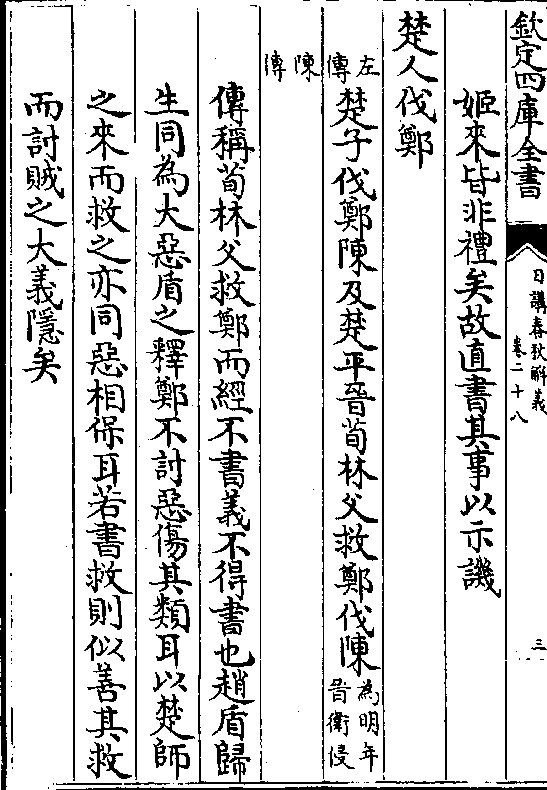 欽定四庫全書
日講春秋解義
卷二十八
三
姬來皆非禮矣故直書其事以示譏
楚人伐鄭
左傳楚子伐鄭陳及楚平晉荀林父救鄭伐陳為明年晉衛侵
陳傳
傳稱荀林父救鄭而經不書義不得書也趙盾歸
生同為大惡盾之釋鄭不討惡傷其類耳以楚師
之來而救之亦同惡相保耳若書救則似善其救
而討賊之大義隱矣